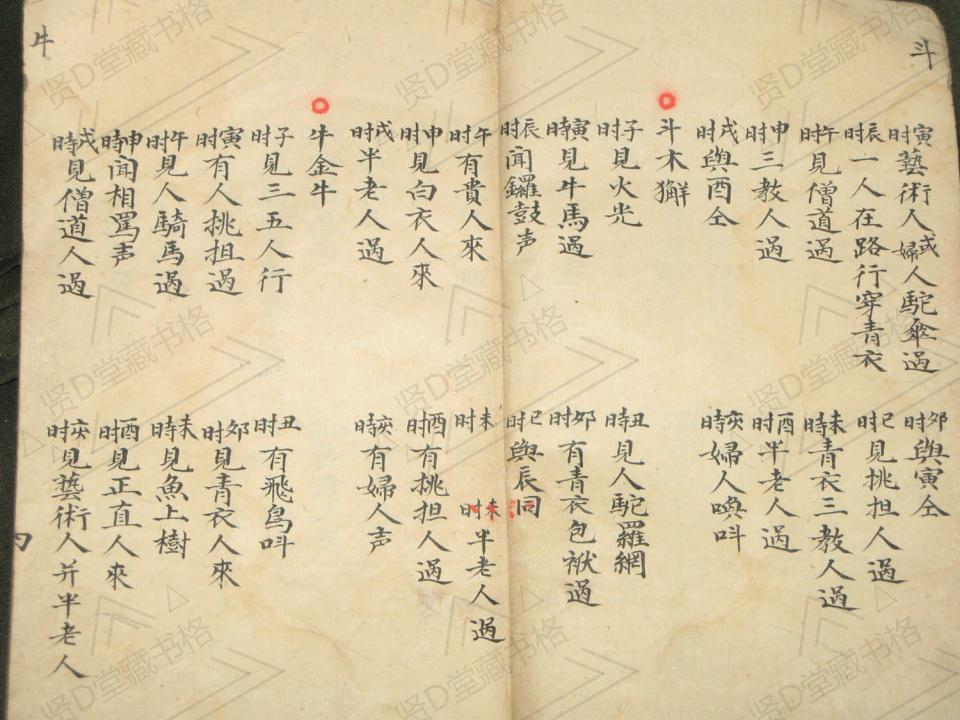 斗
寅时藝術人或婦人駝傘過
卯时與寅仝
辰时一人在路行穿青衣
巳时見挑担人過
午时見僧道過
未時青衣三教人過
申时三教人過
酉时半老人過
戌时與酉仝
亥時婦人喚呌
斗木獬
子时見火光
丑時見人駝羅網
寅時見牛馬過
卯时有青衣包袱過
辰时聞鑼鼓声
巳时與辰同
午时有貴人來
未时
未时半老人過
申时見白衣人來
酉时有挑担人過
戌时半老人過
亥時有婦人声
牛金牛
子时見三五人行
丑时有飛鳥呌
寅时有人挑担過
卯时見青衣人來
午时見人騎馬過
未時見魚上樹
申時聞相罵声
酉时見正直人來
戌時見僧道人過
亥时見藝術人并半老人
牛
贤D堂藏书格